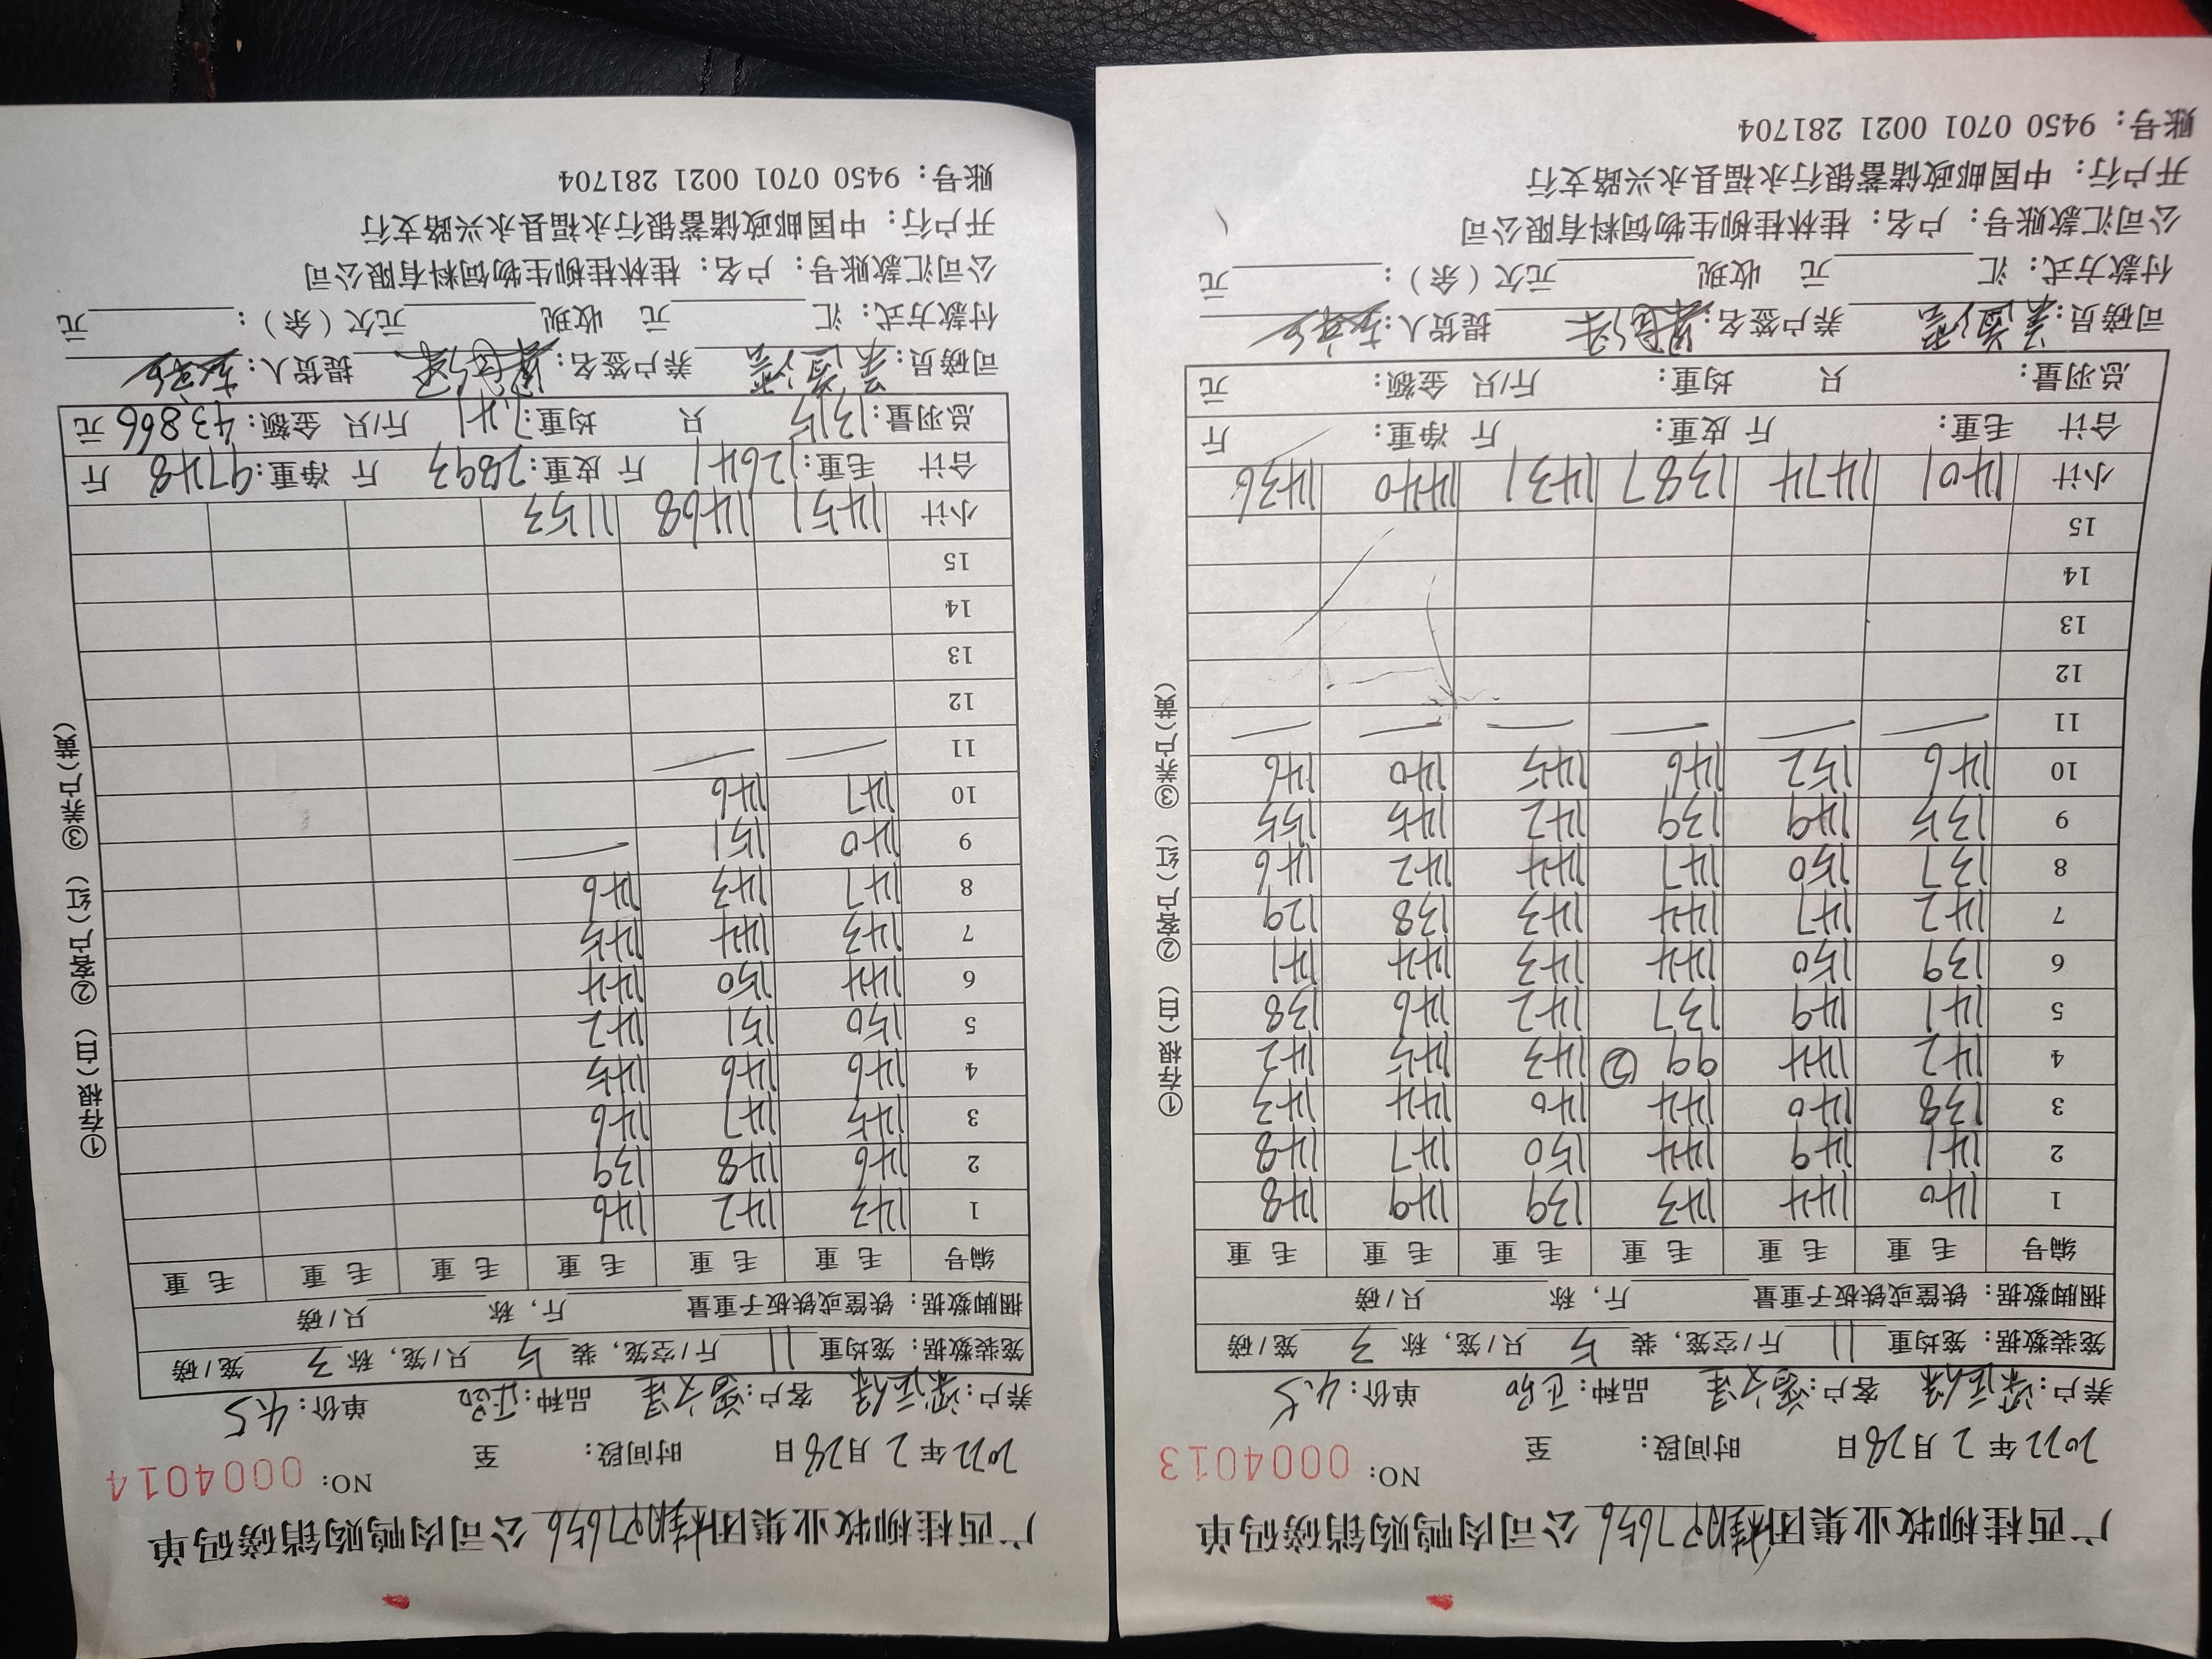 广西桂柳牧业集团桂AR27656公司肉鸭购销磅码单
NO: 0004013
2022年2月28日 时间段: 至
养户: 客户: 品种: 正品 单价: 4.5
笼装数据: 笼均重 11 斤/空笼, 装 5 只/笼, 称 3 笼/磅
捆脚数据: 铁筐或铁板子重量 斤, 称 只/磅
编号 毛重 毛重 毛重 毛重 毛重 毛重
1 140 144 143 139 149 148
2 141 149 144 150 147 148
3 138 140 144 140 144 143
4 142 144 99② 143 145 142
5 141 149 137 142 146 138
6 139 150 144 143 144 141
7 142 147 144 143 138 129
8 137 150 147 144 142 146
9 135 149 139 142 145 155
10 146 152 146 145 140 146
11
12
13
14
15
小计 1401 1474 1387 1431 1440 1436
合计 毛重: 斤 皮重: 斤 净重: 斤
总羽量: 只 均重: 斤/只 金额: 元
司磅员: 养户签名: 提货人:
付款方式: 汇 元 收现 元欠(余): 元
公司汇款账号: 户名: 桂林桂柳生物饲料有限公司
开户行: 中国邮政储蓄银行永福县永兴路支行
账号: 9450 0701 0021 281704
①存根(白) ②客户(红) ③养户(黄)
广西桂柳牧业集团桂AR27656公司肉鸭购销磅码单
NO: 0004014
2022年2月28日 时间段: 至
养户: 客户: 品种: 正品 单价: 4.5
笼装数据: 笼均重 11 斤/空笼, 装 5 只/笼, 称 3 笼/磅
捆脚数据: 铁筐或铁板子重量 斤, 称 只/磅
编号 毛重 毛重 毛重 毛重 毛重 毛重
1 143 142 146
2 146 148 139
3 145 147 146
4 146 146 145
5 150 151 142
6 144 150 144
7 143 144 145
8 147 143 146
9 140 151
10 147 146
11
12
13
14
15
小计 1451 1468 1153
合计 毛重: 12641 斤 皮重: 2893 斤 净重: 9748 斤
总羽量: 1315 只 均重: 7.41 斤/只 金额: 43866 元
司磅员: 养户签名: 提货人:
付款方式: 汇 元 收现 元欠(余): 元
公司汇款账号: 户名: 桂林桂柳生物饲料有限公司
开户行: 中国邮政储蓄银行永福县永兴路支行
账号: 9450 0701 0021 281704
①存根(白) ②客户(红) ③养户(黄)